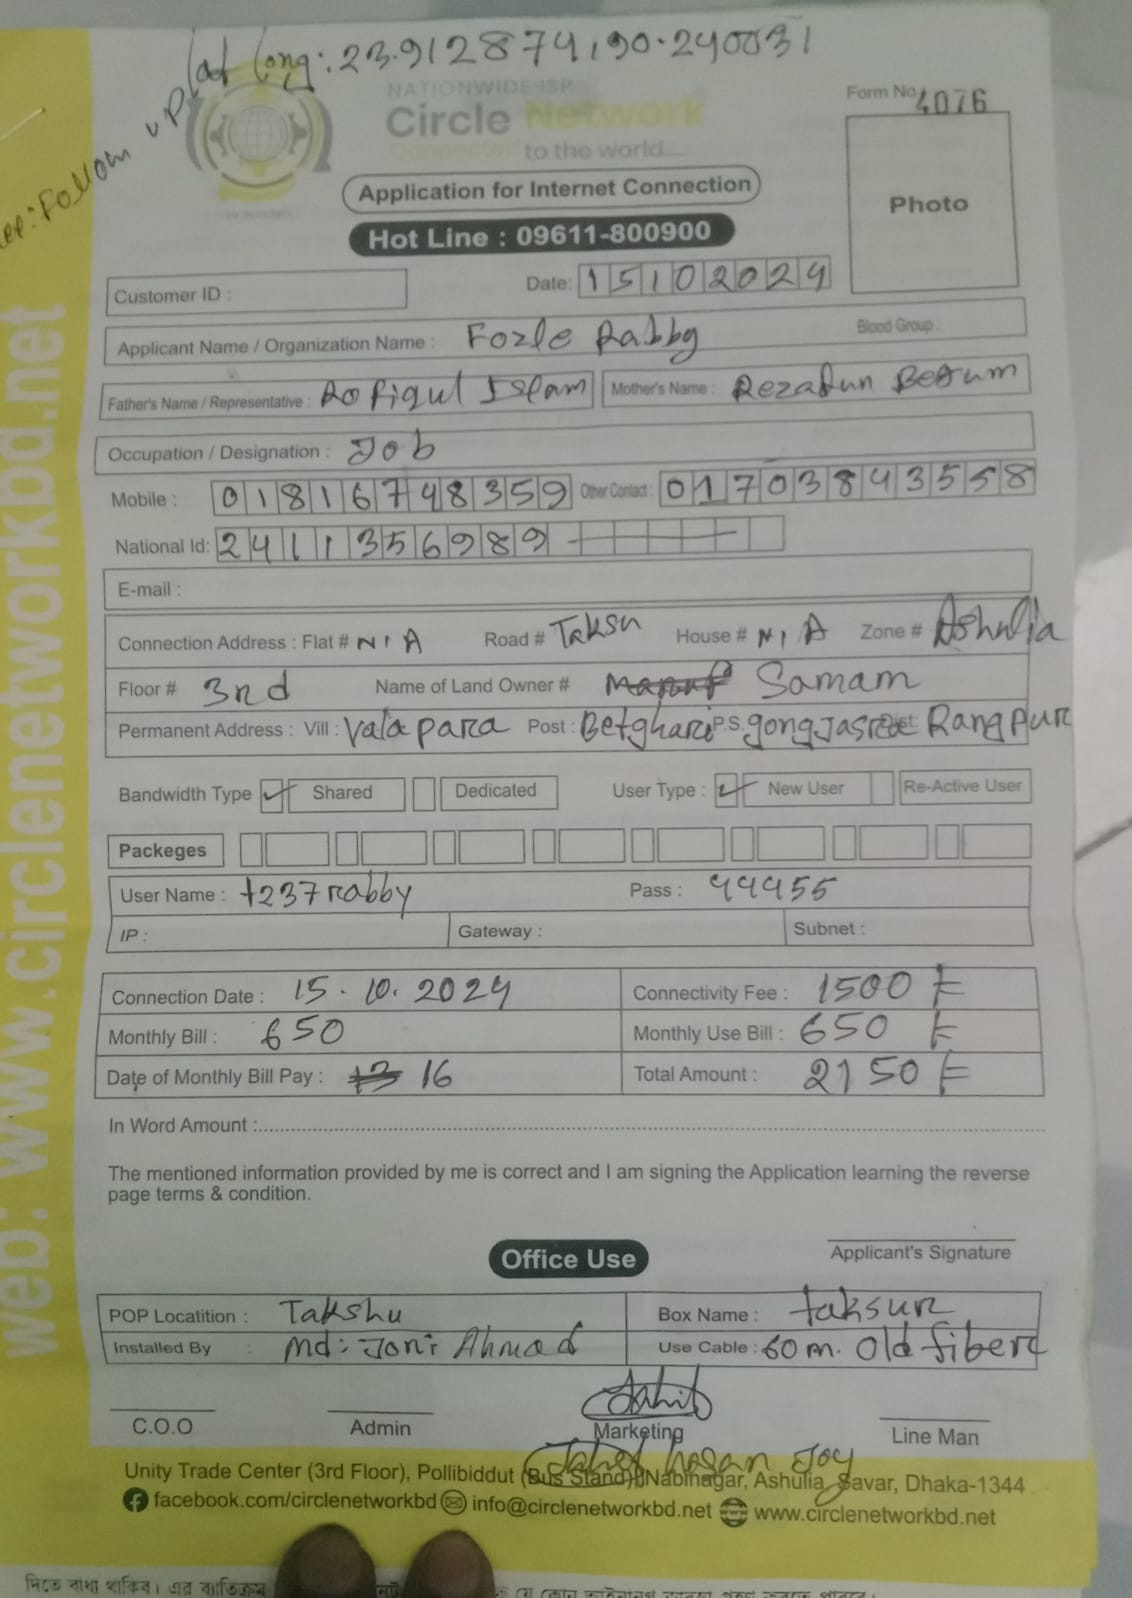 Lat Long: 23.912874,90.240031
Ref: Follow up
NATIONWIDE ISP
Circle Network
Connected to the world....
Form No 4076
Photo
Application for Internet Connection
Hot Line : 09611-800900
Customer ID :
Date: 15102024
Applicant Name / Organization Name : Fozle Rabby Blood Group :
Father's Name / Representative : Rofiqul Islam Mother's Name : Rezafun Begum
Occupation / Designation : Job
Mobile : 01816748359 Other Contact : 01703843558
National Id: 2411356989
E-mail :
Connection Address : Flat # N/A Road # Taksu House # N/A Zone # Ashulia
Floor # 3nd Name of Land Owner # Samam
Permanent Address : Vill : Valapara Post : Betghari P.S. gongJasra Dist: Rangpur
Bandwidth Type ✓ Shared Dedicated User Type : ✓ New User Re-Active User
Packeges
User Name : t237rabby Pass : 44455
IP : Gateway : Subnet :
Connection Date : 15.10.2024 Connectivity Fee : 1500 ৳
Monthly Bill : 650 Monthly Use Bill : 650 ৳
Date of Monthly Bill Pay : 13 16 Total Amount : 2150 ৳
In Word Amount :
The mentioned information provided by me is correct and I am signing the Application learning the reverse
page terms & condition.
Applicant's Signature
Office Use
POP Locatition : Takshu Box Name : taksur
Installed By : Md: Joni Ahmad Use Cable : 60m. Old fiber
C.O.O Admin Marketing Line Man
hasan Joy
Unity Trade Center (3rd Floor), Pollibiddut (Bus Stand), Nabinagar, Ashulia, Savar, Dhaka-1344
facebook.com/circlenetworkbd info@circlenetworkbd.net www.circlenetworkbd.net
web: www.circlenetworkbd.net
দিতে বাধ্য থাকিব। এর ব্যতিক্রম